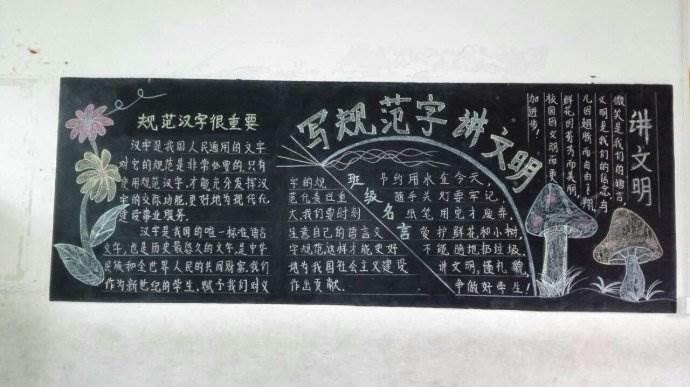 规范汉字很重要
汉字是我国人民通用的文字
对它的规范是非常必要的,只有
使用规范汉字,才能充分发挥汉
字的交际功能,更好地为现代化
建设事业服务。
汉字是我国的唯一标准语言
文字,也是历史最悠久的文字,是中华
民族和全世界人民的共同财富,我们
作为新世纪的学生,赋予我们对文
写规范字 讲文明
字的规
范化甚过重
大,我们要时刻
注意自己的语言文
字规范,这样才能更好
地为我国社会主义建设
作出贡献。
班级名言
节约用水在今天,
随手关灯要牢记,
纸笔用完才废弃,
爱护鲜花和小树,
不能随地扔垃圾,
讲文明,懂礼貌,
争做好学生!
讲文明
微笑是我们的语言,
文明是我们的信念,
儿因翅膀而自由
鲜花因芬芳而美丽,
校园因文明而更
加进步!